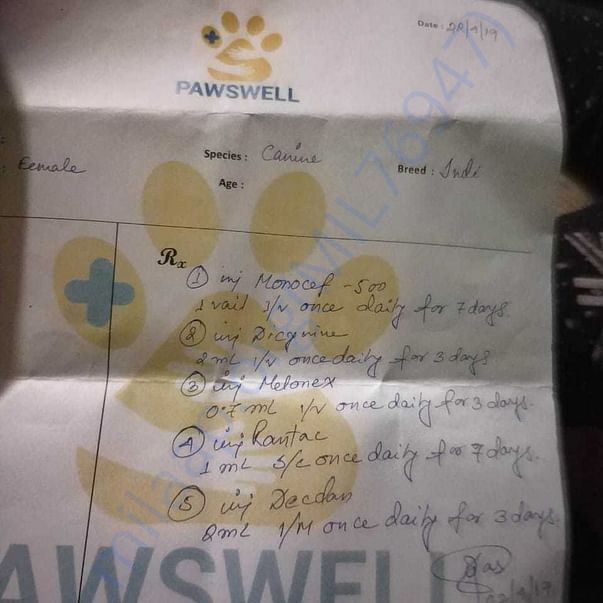 Date : 28/9/19
PAWSWELL
Species : Canine
: Female
Breed : Indi
Age :
Rx
① inj Monocef -500
1 vail I/v once daily for 7 days.
② inj Dicynine
2 mL I/v once daily for 3 days
③ inj Melonex
0.7 mL I/v once daily for 3 days.
④ inj Rantac
1 mL S/c once daily for 7 days.
⑤ inj Decdan
2 mL I/M once daily for 3 days.
PAWSWELL